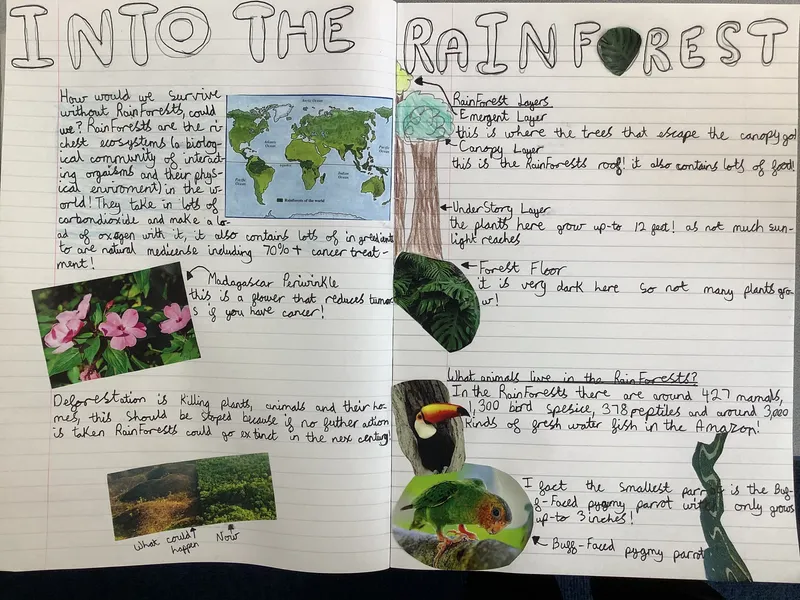 INTO THE RAINFOREST
How would we survive
without RainForests, could
we? RainForests are the ri-
chest ecosystems (a biolog-
ical community of interact-
ing orgaisms and their phys-
ical enviroment) in the w-
orld! They take in lots of
carbondioxide and make a lo-
ad of oxegen with it, it also contains lots of ingrediants
to are natural medicense including 70%+ cancer treat-
ment!
Arctic Ocean
Atlantic
Ocean
Pacific
Ocean
Pacific
Ocean
Indian
Ocean
Rainforests of the world
Madagascar Periwinkle
this is a flower that reduces tumor
s if you have cancer!
Deforestation is Killing plants, animals and their ho-
mes, this should be stoped because if no futher action
is taken RainForests could go extinct in the nex century!
What could
happen
Now
RainForest Layers
Emergent Layer
this is where the trees that escape the canopy go!
Canopy Layer
this is the RainForests roof! it also contains lots of food!
UnderStory Layer
the plants here grow up-to 12 feet! as not much sun-
light reaches
Forest Floor
it is very dark here so not many plants gro-
w!
What animals live in the RainForests?
In the RainForests there are around 427 mamals,
1,300 bird spesice, 378 reptiles and around 3,000
kinds of fresh water fish in the Amazon!
I fact the smallest parrot is the Buf-
f-Faced pygmy parrot only grows
up-to 3 inches!
Buff-Faced pygmy parrot